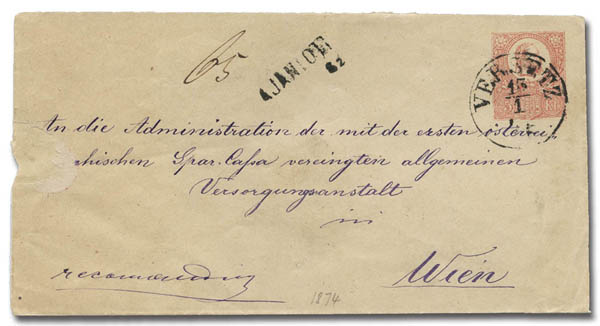 65
AJANLOTT
82
VERSETZ
15
1
An die Administration der mit der ersten österrei-
chischen Spar-Cassa vereingten allgemeinen
Versorgungsanstalt
in
Wien
recomandirt
1874